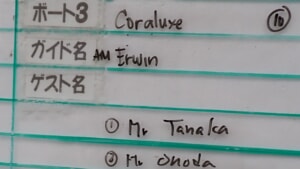 ボート3 Coraluxe ⑩
ガイド名 AM Erwin
ゲスト名
① Mr Tanaka
② Mr Onoda